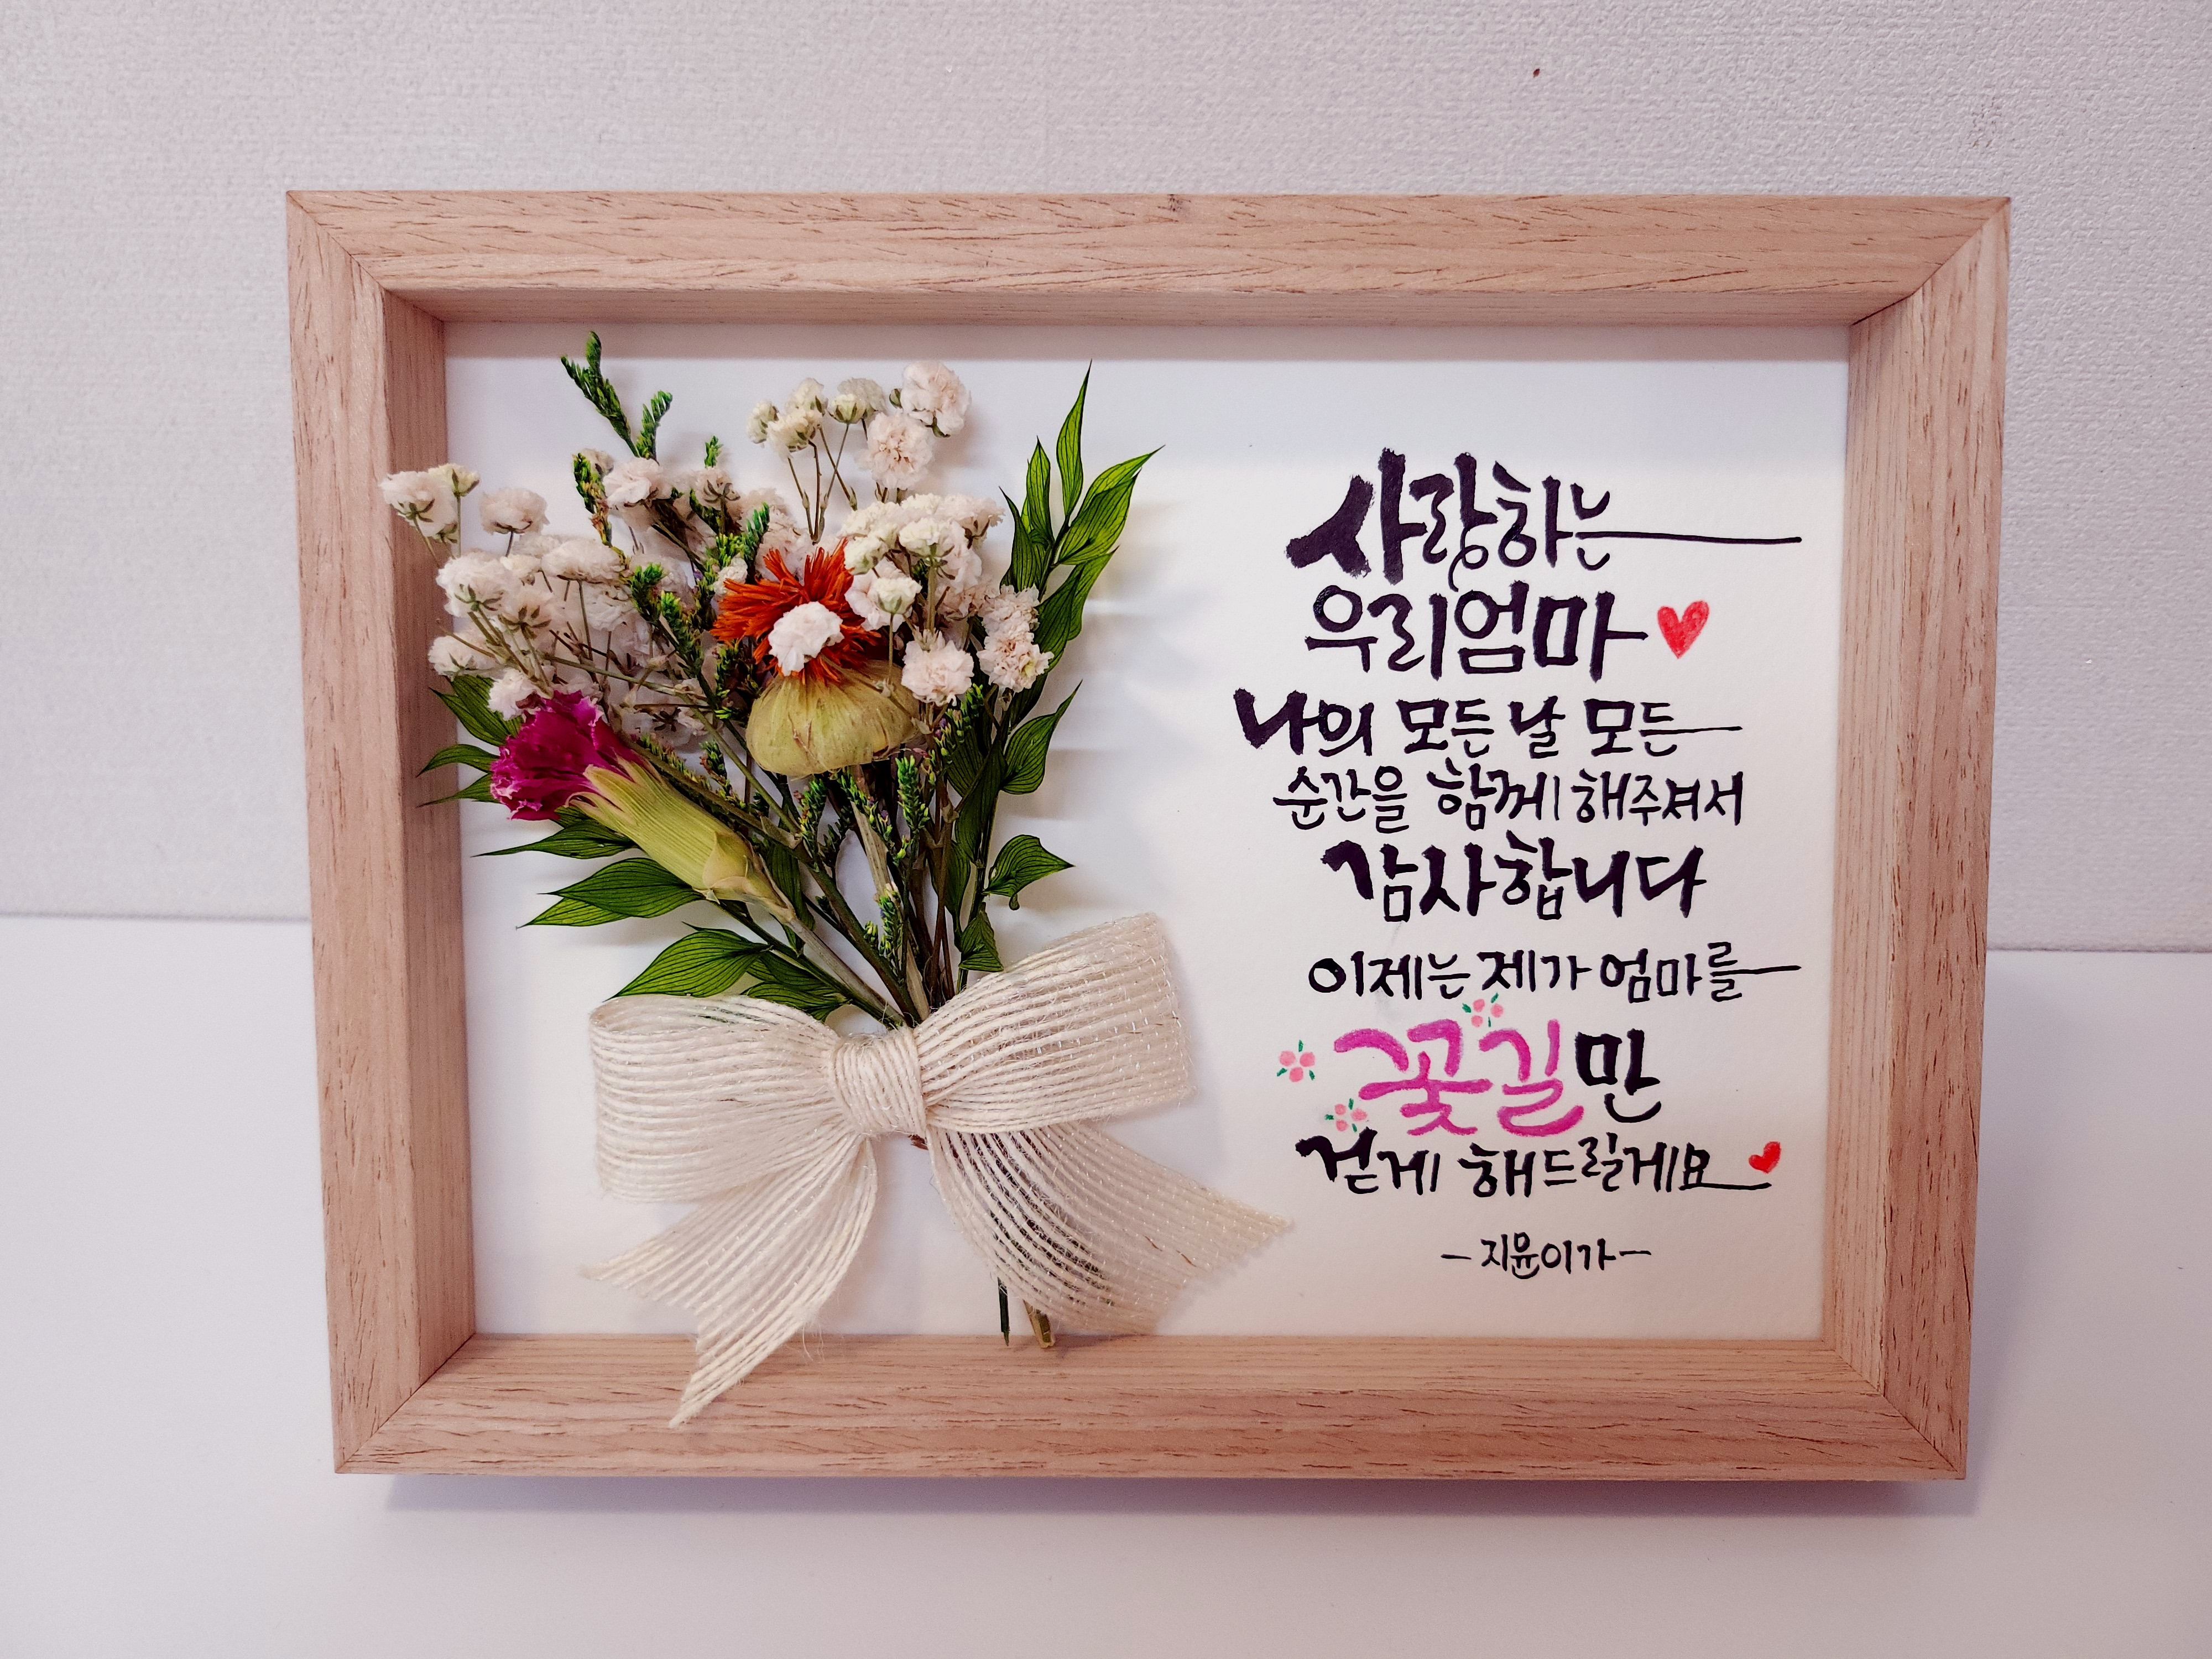 사랑하는
우리엄마
나의 모든 날 모든
순간을 함께 해주셔서
감사합니다
이제는 제가 엄마를
꽃길만
걷게 해드릴게요
-지윤이가-